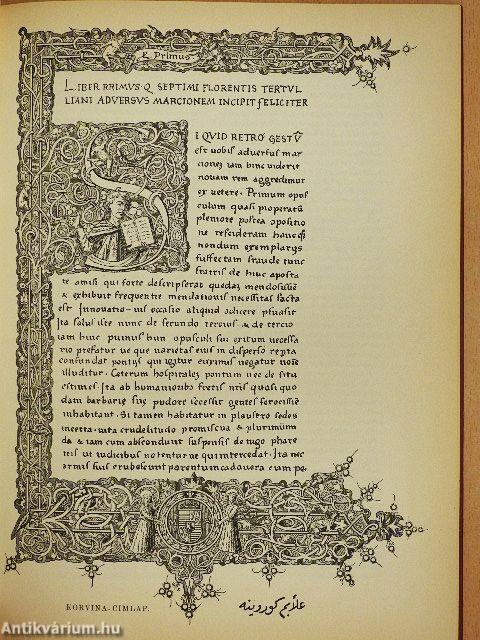 E Primus
LIBER PRIMUS · Q SEPTIMI FLORENTIS TERTUL
LIANI ADVERSUS MARCIONEM INCIPIT FELICITER
SI QUID RETRO GESTŪ
est uobis aduersus mar
cionez iam hinc uiderit
nouam rem aggredimur
ex uetere. Primum opus
culum quasi properatū
pleniore postea opositio
ne rescideram hanc
nondum exemplarijs
suffectam fraude tunc
fratris de hinc aposta
te amisi qui forte descripserat quedaz mendosissie
& exhibuit frequentie mendationis necessitas facta
est Innouatio-nis occasio aliquid adicere psuasit
Ita salus iste nunc de secundo tercius & de tercio
iam hinc primus hun opusculi sui exitum necessa
rio prefatur ue que uarietas eius in disperso repta
confundat pontus qui igitur euxinus negatur noie
illuditur. Ceterum hospitales pontum nec de situ
estimes. Ita ab humanioribo fretis nris quasi quo
dam barbarie sue pudore secessit gentes ferocissie
inhabitant. Si tamen habitatur in plaustro sedes
incerta. uita crudelitudo promiscua & plurimum
da & iam cum abscondunt suspensis de iugo phare
tris ut iudicibus notentur ne qui intercedat. Ita nec
armis suis erubescunt parentum cadauera cum pe.
KORVINA-CIMLAP.
علایم کوروینه
Antikvárium.hu